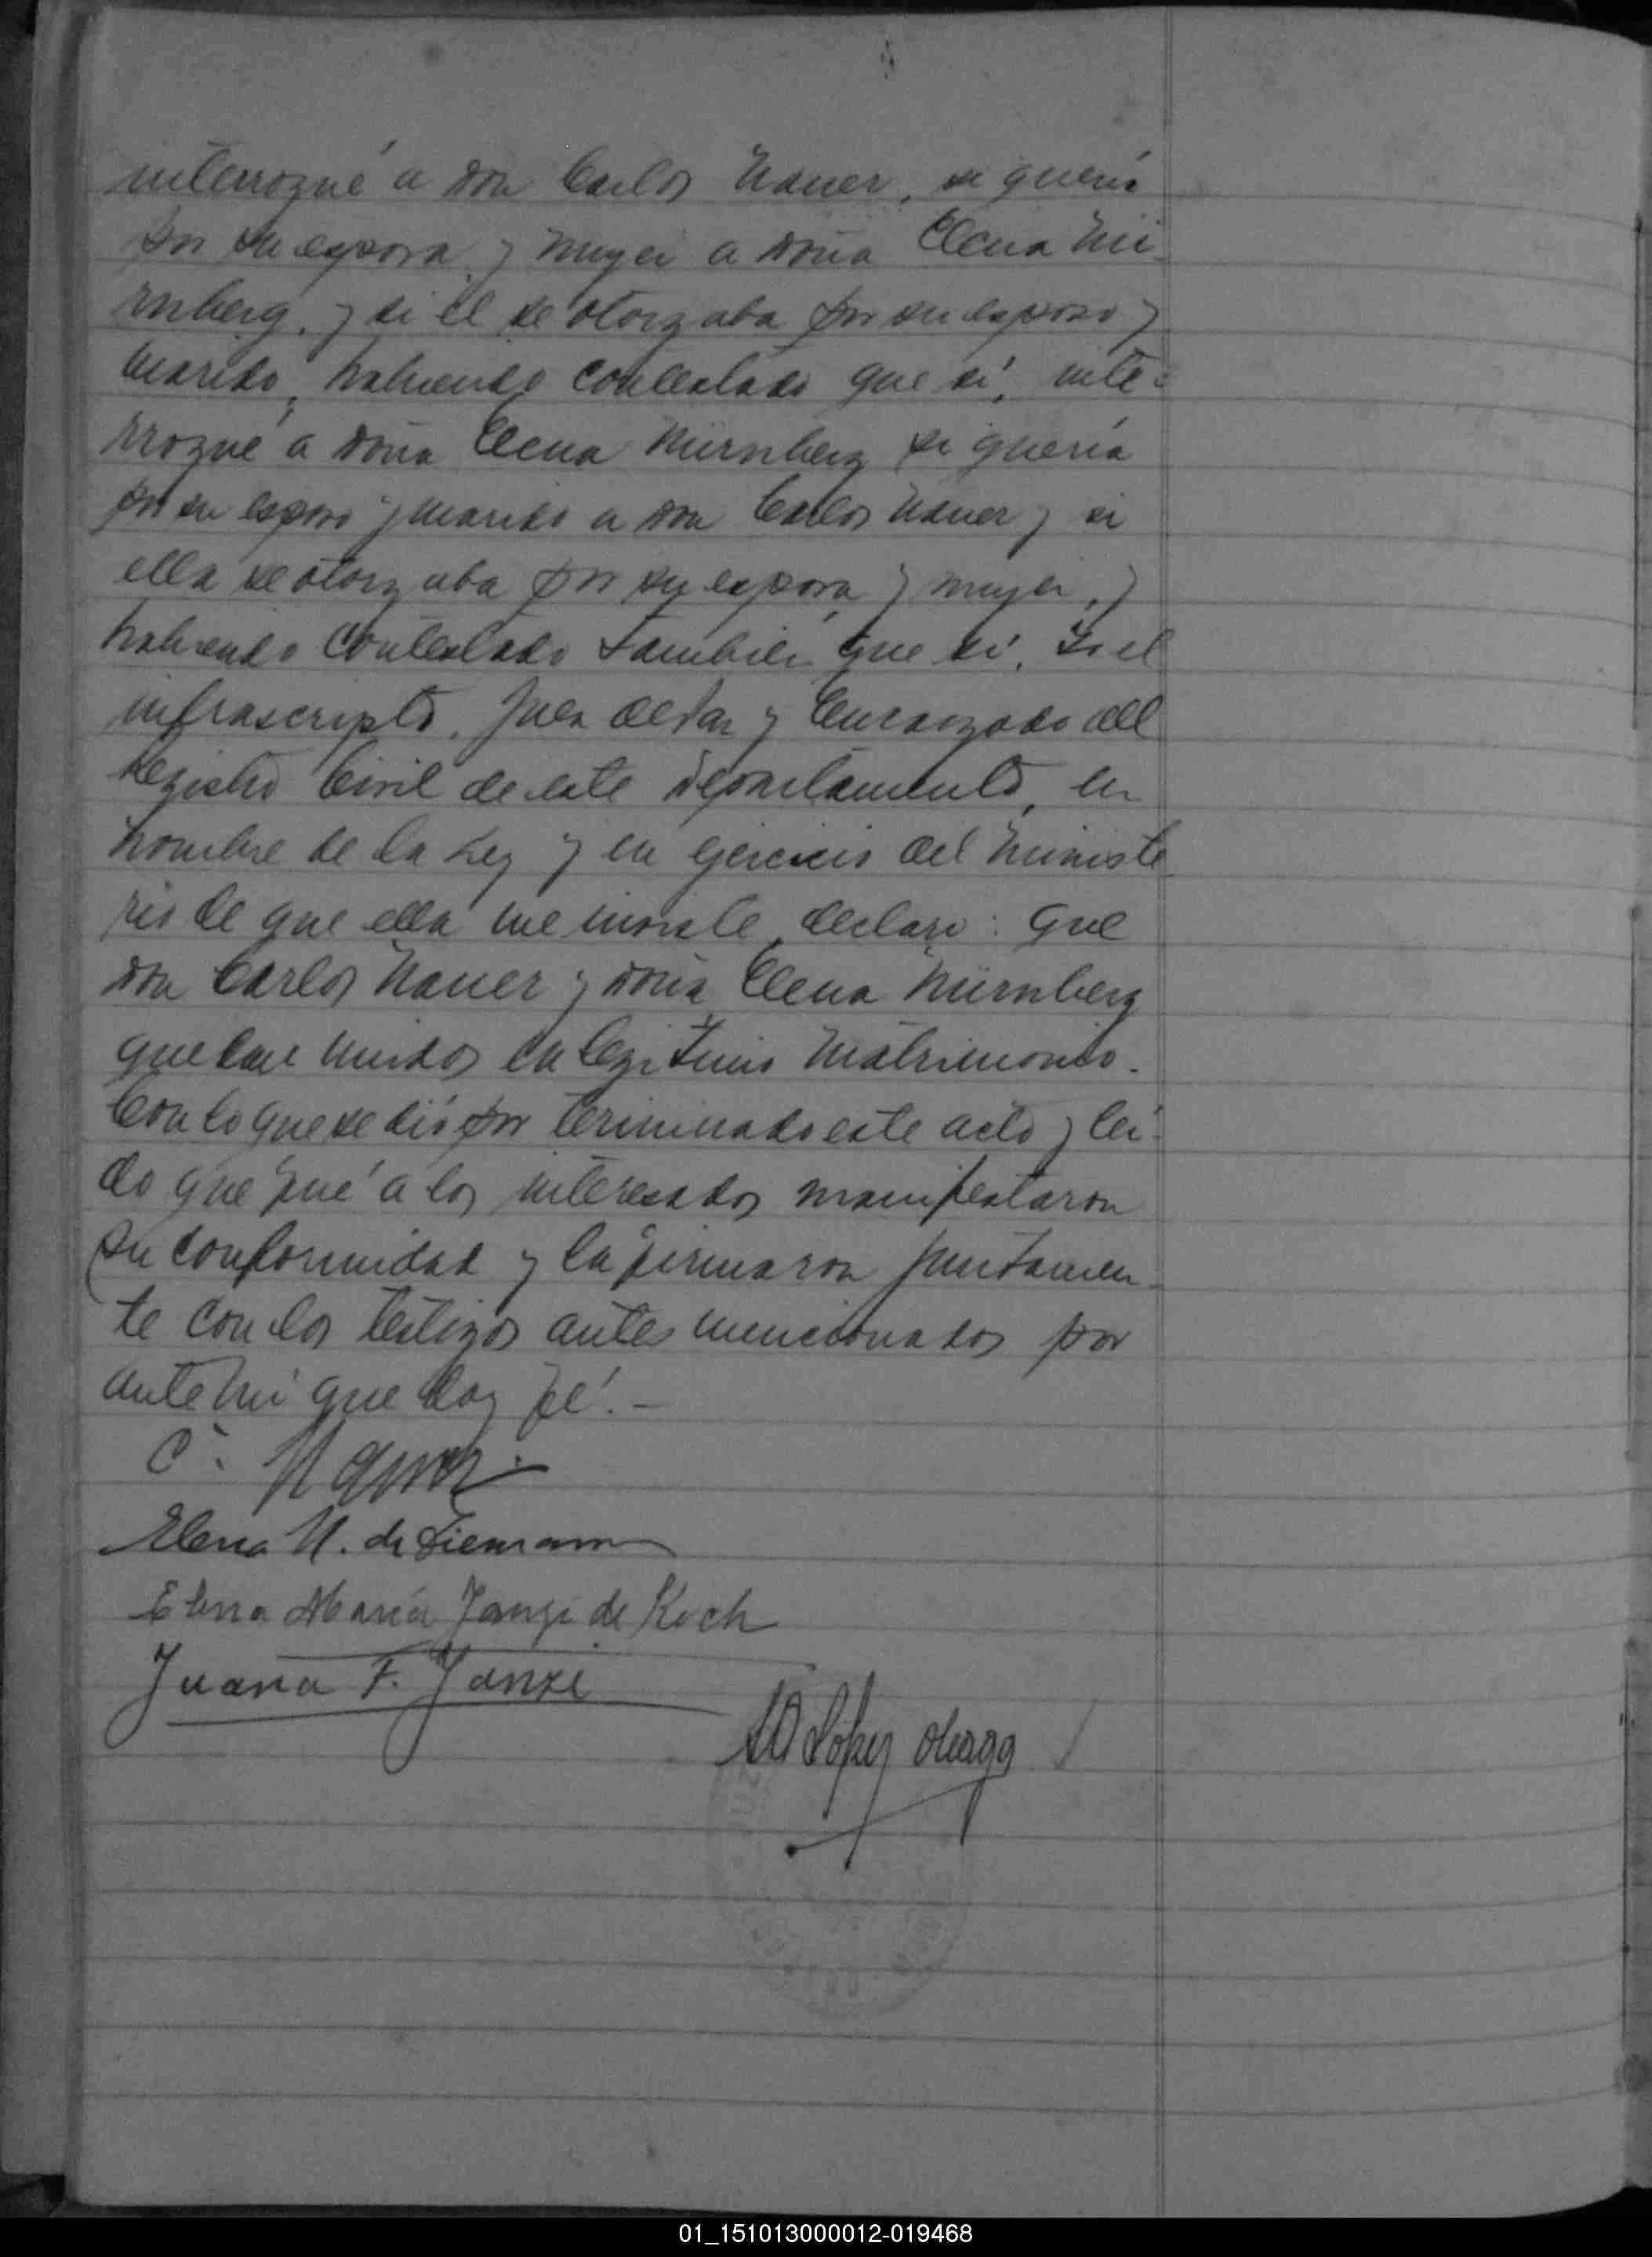 interrogué a don Carlos Nauer, si quería
por su esposa y mujer a doña Elena Nü-
rnberg, y si él se otorgaba por su esposo y
marido, habiendo contestado que sí, inte-
rrogué a doña Elena Nürnberg si quería
por su esposo y marido a don Carlos Nauer y si
ella se otorgaba por su esposa y mujer, y
habiendo contestado también que sí, Yo el
infrascripto, Juez de Paz y Encargado del
Registro Civil de este departamento, en
nombre de la Ley y en ejercicio del Ministe
rio de que ella me inviste, declaro: Que
don Carlos Nauer y doña Elena Nürnberg
quedan unidos en legítimo Matrimonio.
Con lo que se dió por terminado este acto y leí-
do que fué a los interesados manifestaron
su conformidad y la firmaron juntamen-
te con los testigos antes mencionados por
ante mí que doy fé.-
C. Nauer
Elena N. de
Elena María Janzi de Koch
Juana F. Janzi
López
01_151013000012-019468